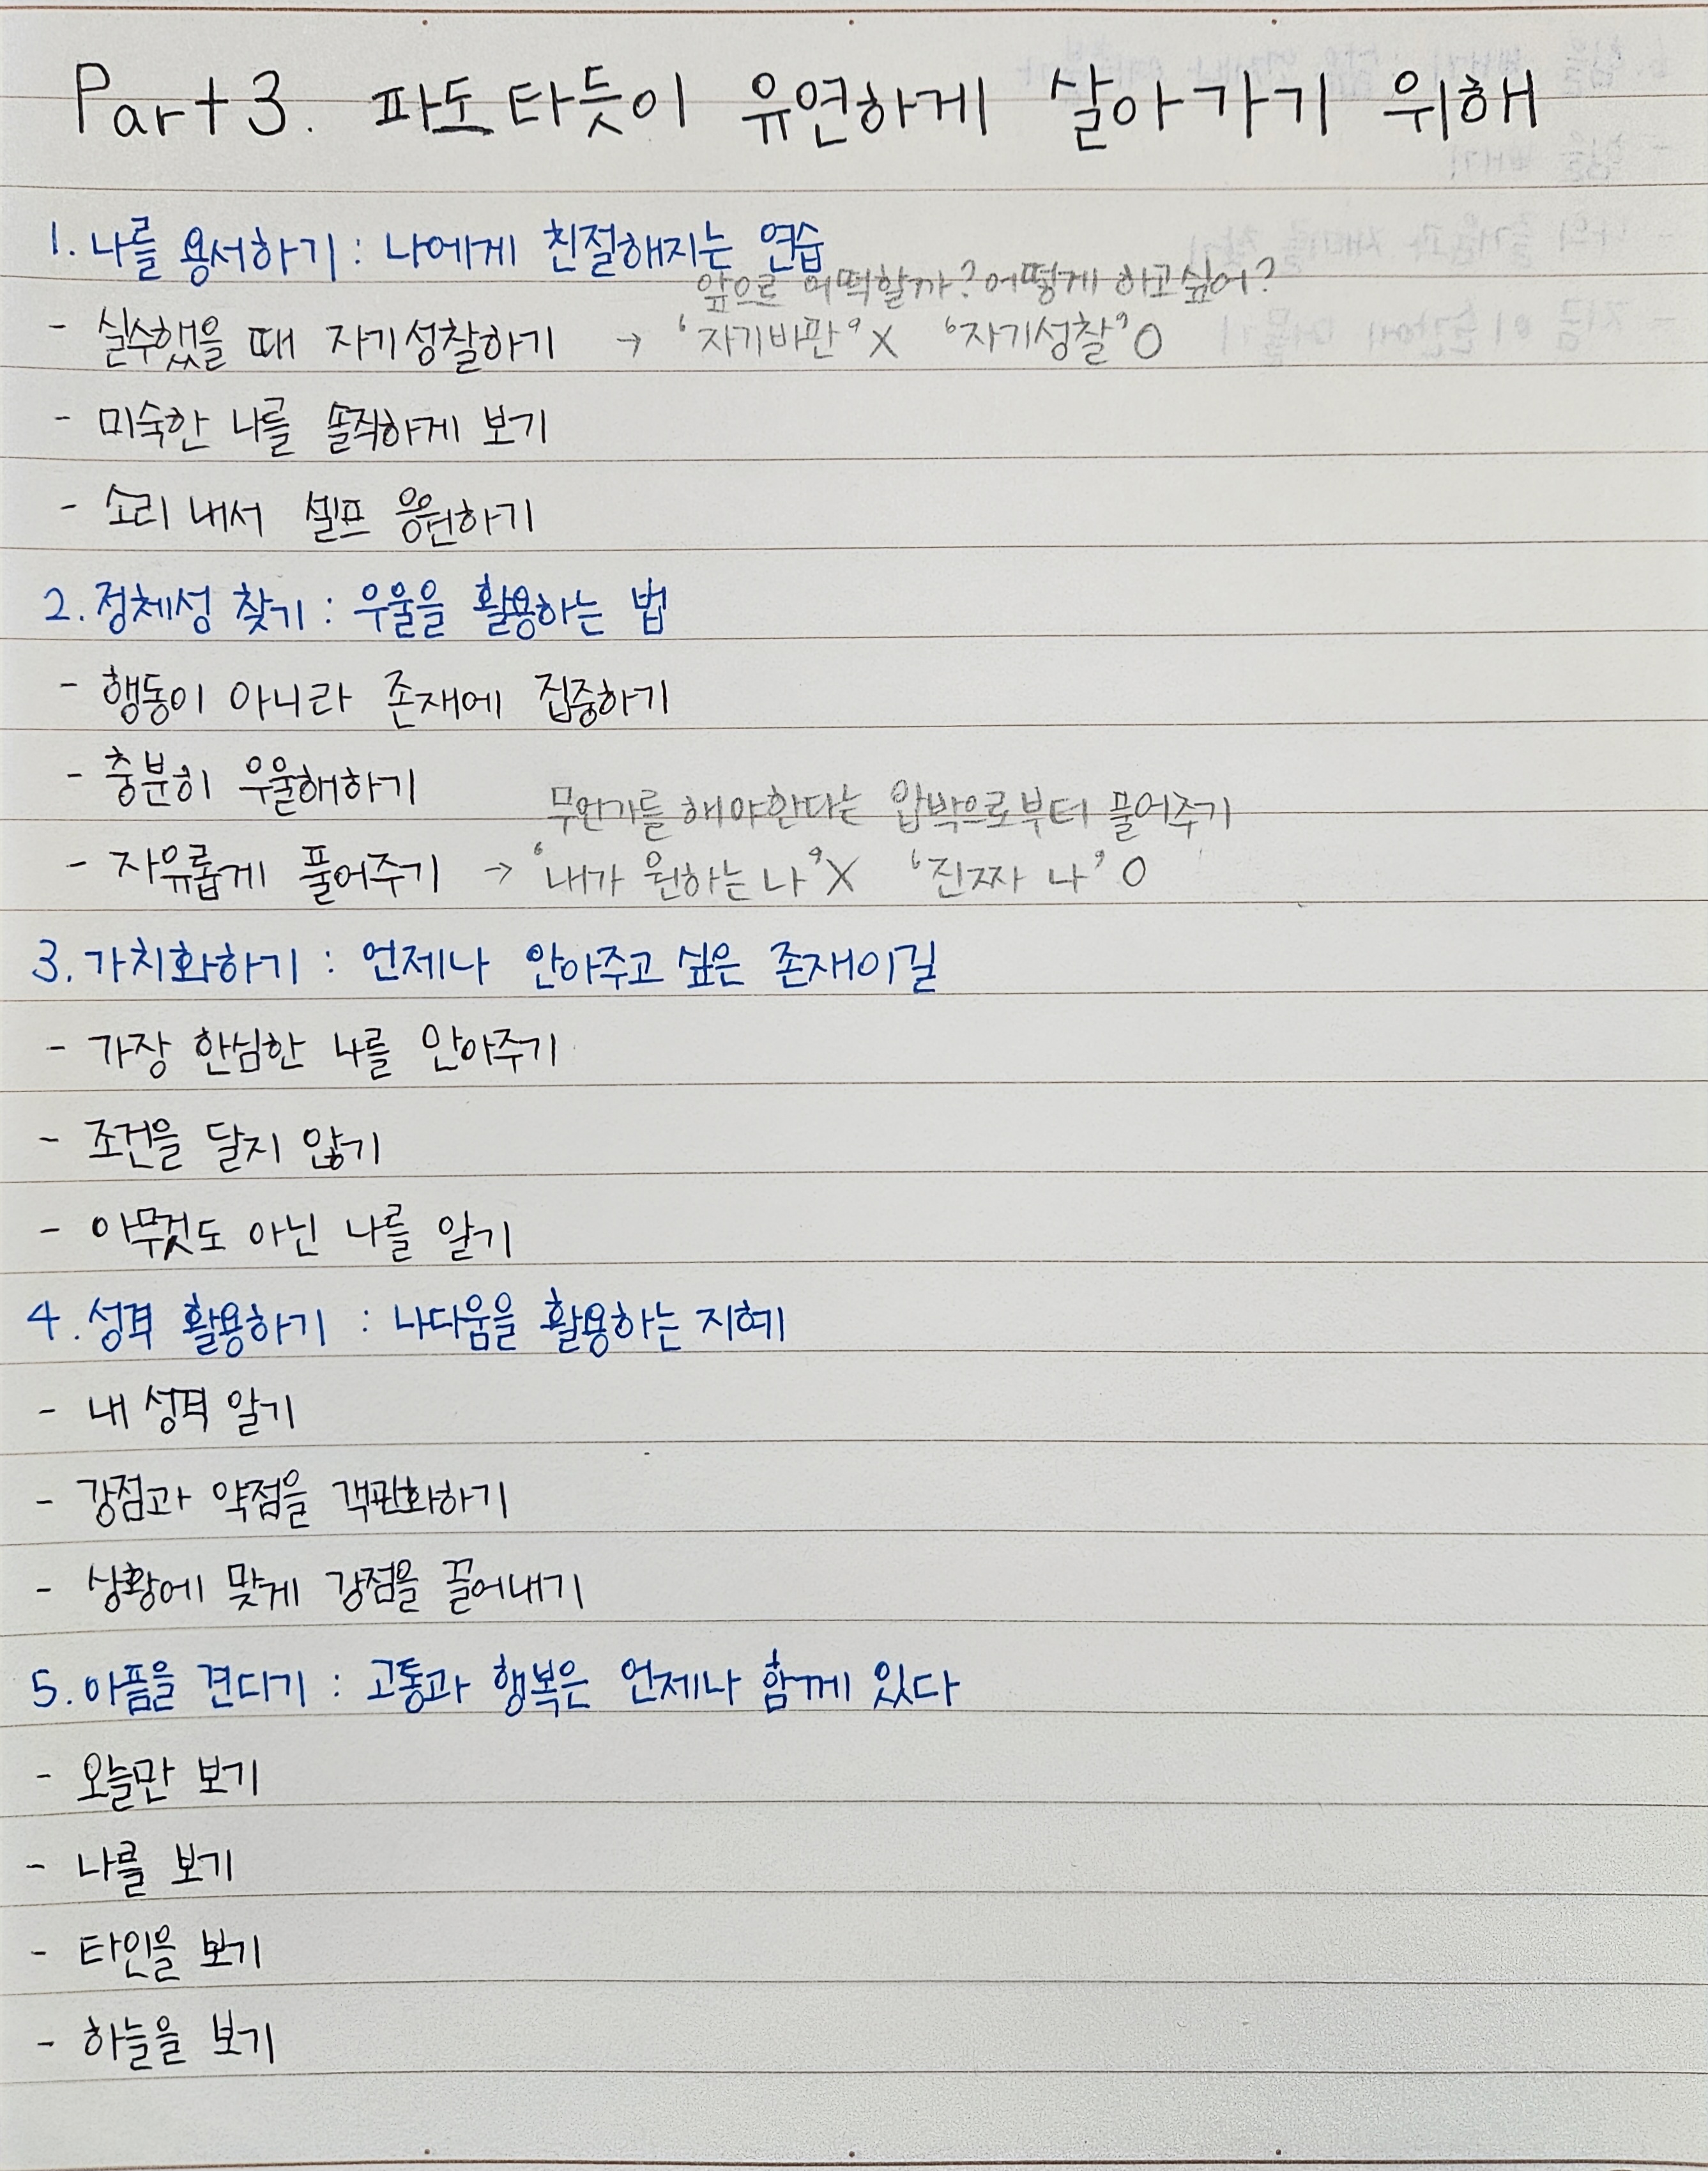 Part 3. 파도타듯이 유연하게 살아가기 위해
1. 나를 용서하기 : 나에게 친절해지는 연습
앞으로 어떡할까? 어떻게 하고싶어?
- 실수했을 때 자기성찰하기 → '자기비판' X '자기성찰' O
- 미숙한 나를 솔직하게 보기
- 소리 내서 셀프 응원하기
2. 정체성 찾기 : 우울을 활용하는 법
- 행동이 아니라 존재에 집중하기
- 충분히 우울해하기
무언가를 해야한다는 압박으로부터 풀어주기
- 자유롭게 풀어주기 → '내가 원하는 나' X '진짜 나' O
3. 가치화하기 : 언제나 안아주고 싶은 존재이길
- 가장 한심한 나를 안아주기
- 조건을 달지 않기
- 아무것도 아닌 나를 알기
4. 성격 활용하기 : 나다움을 활용하는 지혜
- 내 성격 알기
- 강점과 약점을 객관화하기
- 상황에 맞게 강점을 끌어내기
5. 아픔을 견디기 : 고통과 행복은 언제나 함께 있다
- 오늘만 보기
- 나를 보기
- 타인을 보기
- 하늘을 보기